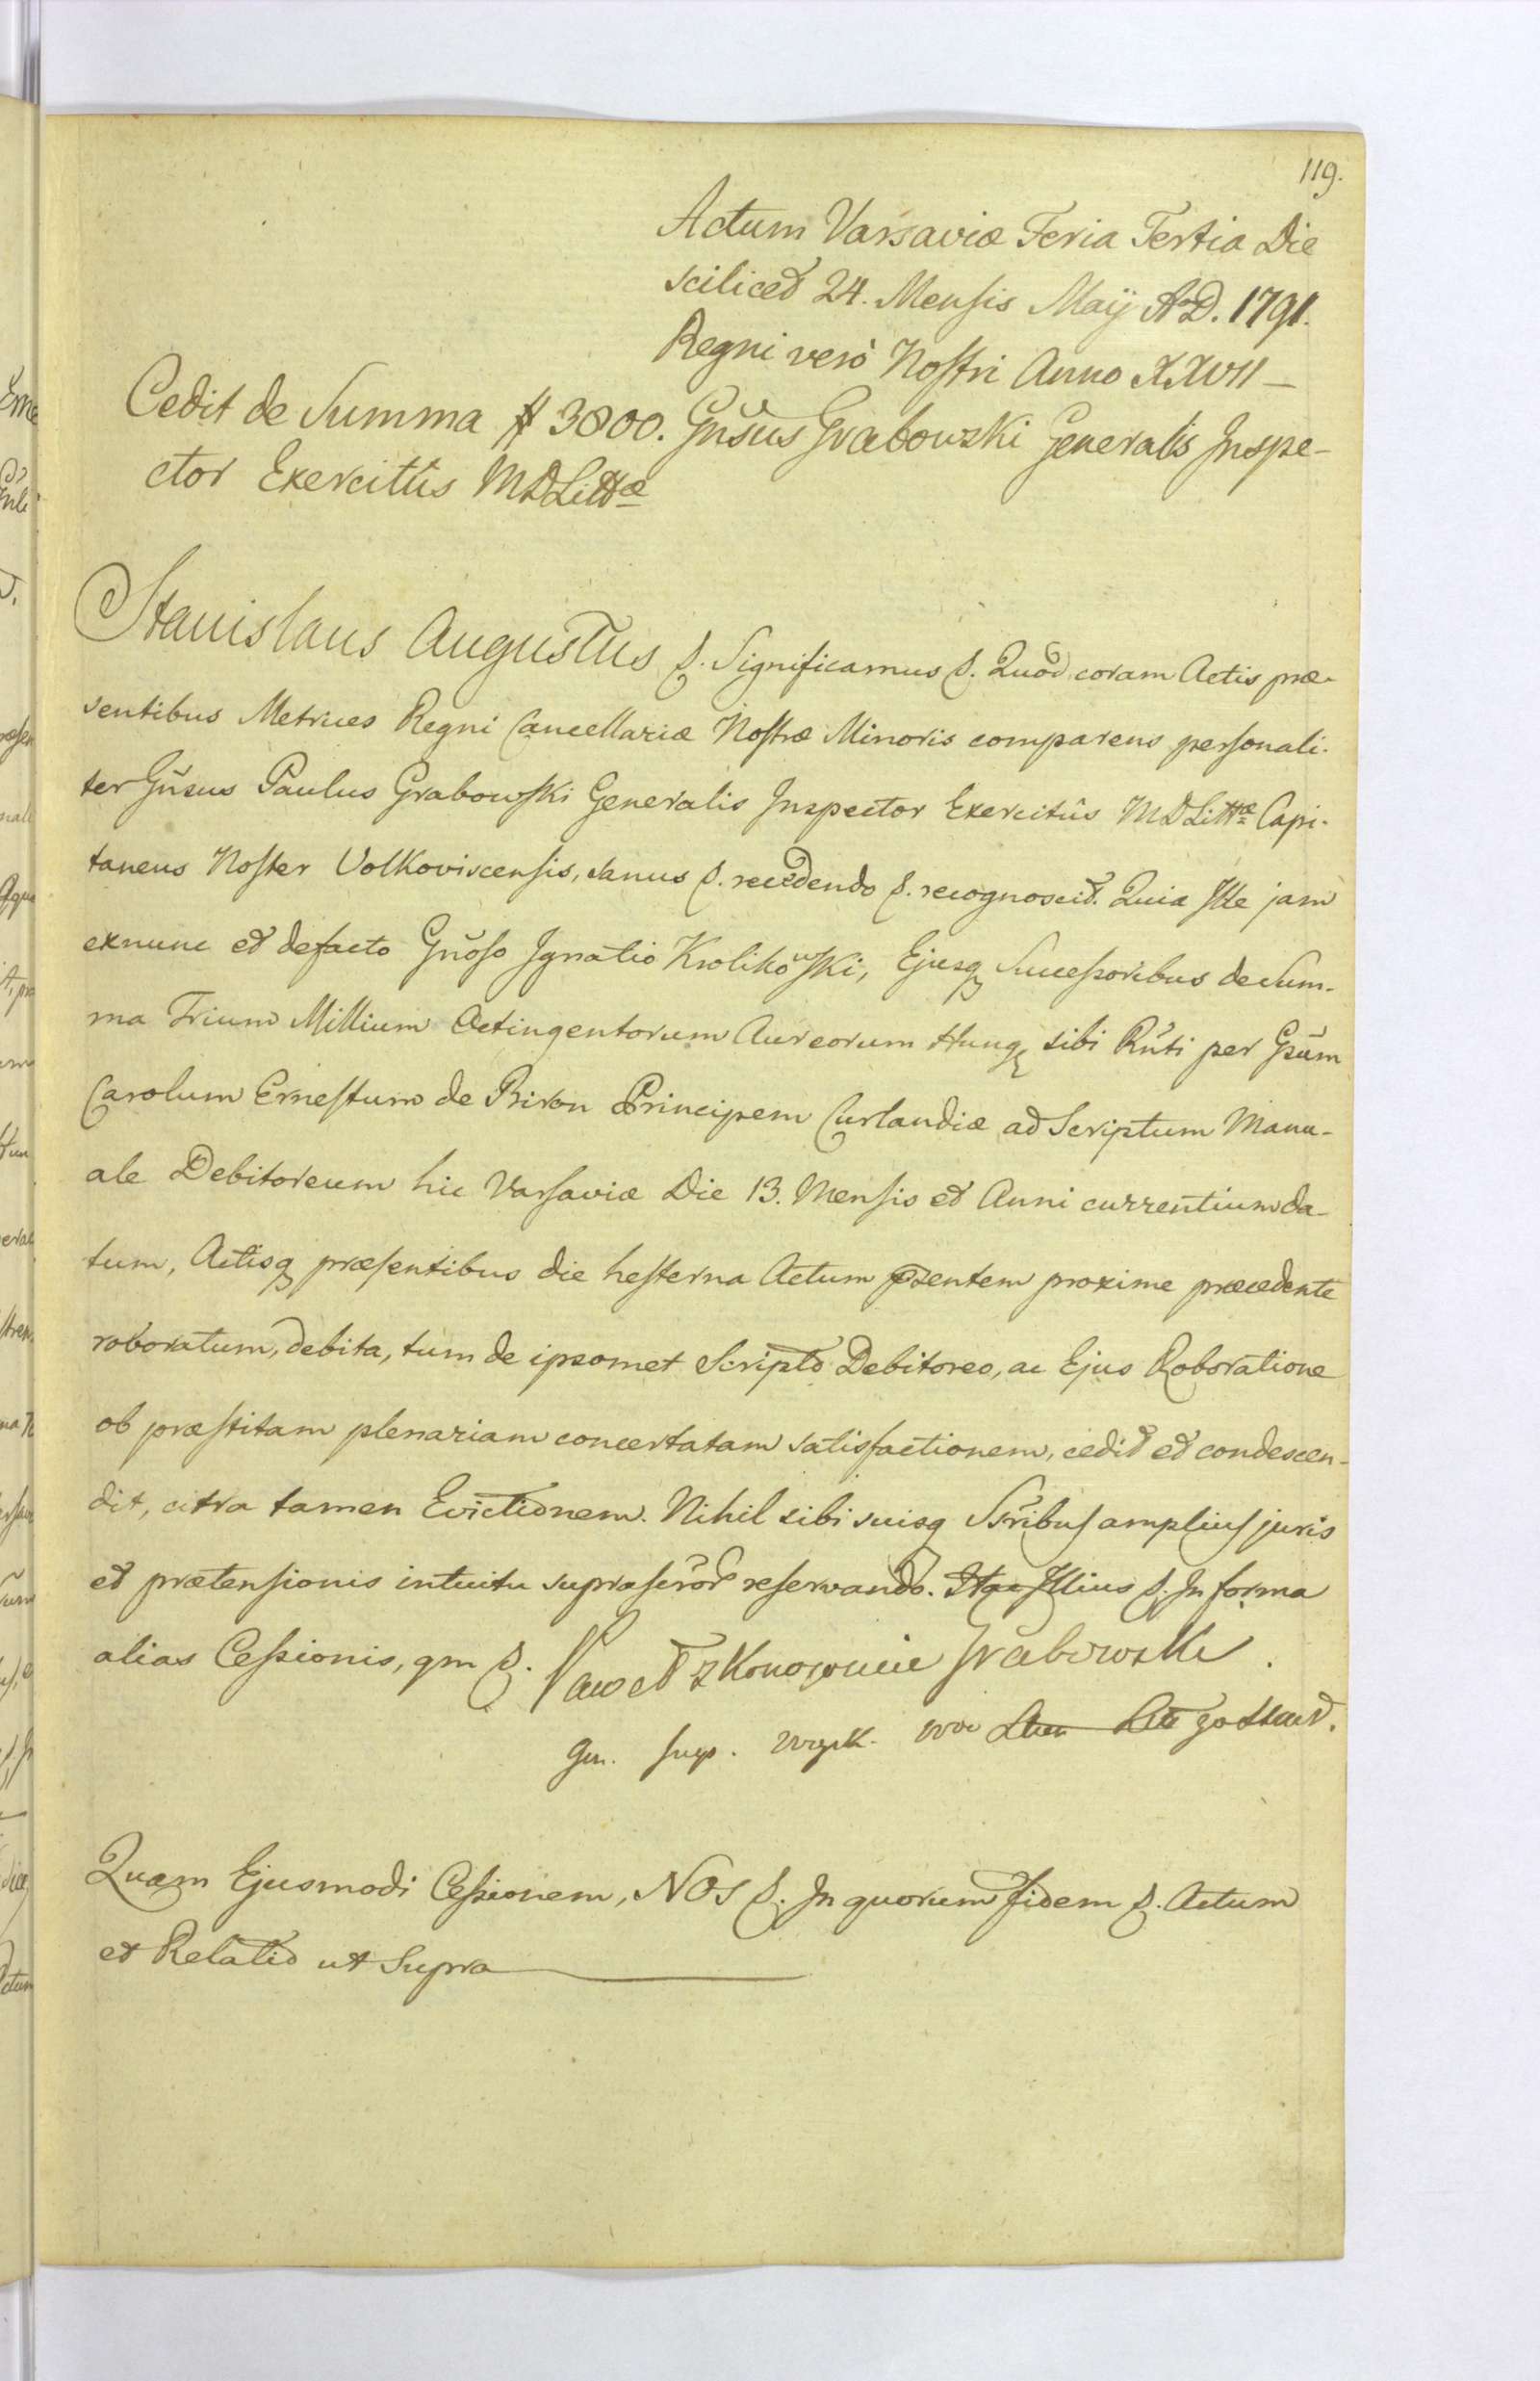 119.
Actum Varsaviæ Feria Tertia Die
scilicet 24. Mensis Maij AD. 1791.
Regni verò Nostri Anno XXVII —
Cedit de Summa # 3800. Gnsus Grabowski Generalis Inspe-
ctor Exercitûs MDLittæ
Stanislaus Augustus &. Significamus &. Quod coram Actis præ-
sentibus Metrices Regni Cancellariæ Nostræ Minoris comparens personali-
ter Gnsus Paulus Grabowski Generalis Inspector Exercitûs MDLittæ Capi-
taneus Noster Volkoviscensis, sanus &. recedendo &. recognoscit. Quia Ille jam
exnunc et defacto Gnoso Ignatio Krolikowski, Ejusq Successoribus de Sum-
ma Trium Millium Octingentorum Aureorum Hungq sibi Rñti per Gsum
Carolum Ernestum de Biron Principem Curlandiæ ad Scriptum Manu-
ale Debitoreum hic Varsaviæ Die 13. Mensis et Anni currentium da-
tum, Actisq præsentibus die hesterna Actum pzentem proxime præcedente
roboratum, debita, tum de ipsomet Scripto Debitoreo, ac Ejus Roboratione
ob præstitam plenariam concertatam satisfactionem, cedit et condescen-
dit, citra tamen Evictionem. Nihil sibi suisq Ssribus amplius juris
et prætensionis intuitu suprascror reservando. Itaq Illius &. In forma
alias Cessionis, qm &. Paweł z Konojowie Grabowski.
Gen. Insp. woysk. w
Quam Ejusmodi Cessionem, NOS &. In quorum fidem &. Actum
et Relatio ut Supra